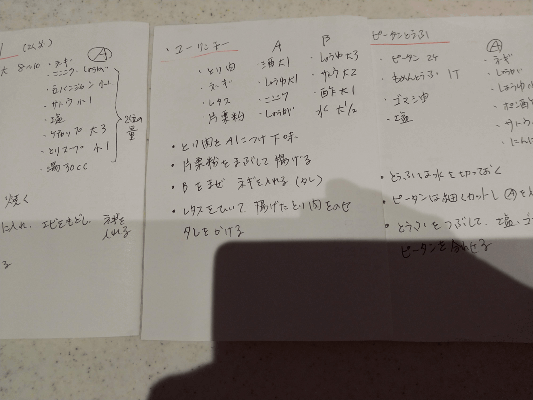 (2人分)
大 8〜10 ・ネギ Ⓐ
・ニンニク、しょうが
・豆バンジャン 小1
・サトウ 小1
・塩
・ケチャップ 大3
・とりスープ 小1
・湯 30cc
2倍の量
焼く
に入れ、エビをもどし、ネギを入れる
る
・ユーリンチー
A B
・とり肉 酒 大1 しょうゆ 大3
・ネギ しょうゆ 大1 サトウ 大2
・レタス ニンニク 酢 大1
・片栗粉 しょうが 水 大1/2
・とり肉をAにつけ下味
・片栗粉をまぶして揚げる
・Bをまぜ ネギを入れる(タレ)
・レタスをしいて、揚げたとり肉をのせ
タレをかける
ピータンとうふ
・ピータン 2ヶ Ⓐ
・もめんとうふ 1丁 ・ネギ
・ゴマ油 ・しょうが
・塩 ・しょうゆ
・ポン酢
・サトウ
・にんに
・とうふは水を切っておく
・ピータンは細くカットし Ⓐを
・とうふをつぶして、塩、ゴ
ピータンを合わせる